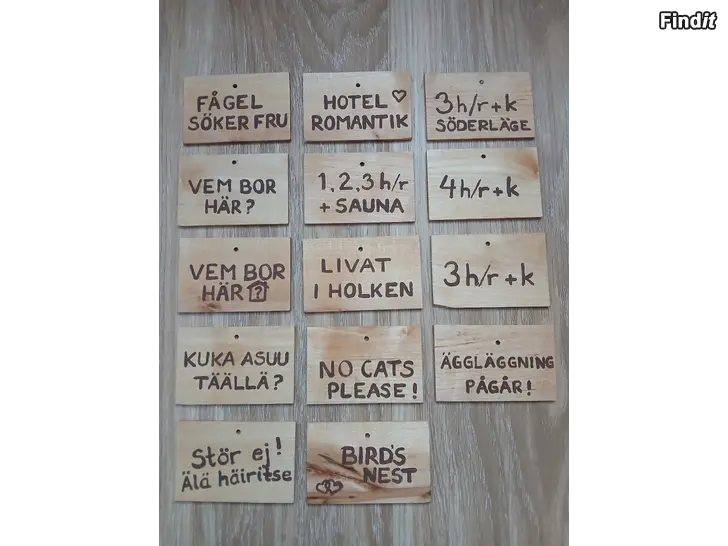 Findit
FÅGEL
SÖKER FRU
HOTEL
ROMANTIK
3h/r+k
SÖDERLÄGE
VEM BOR
HÄR?
1,2,3h/r
+ SAUNA
4h/r+k
VEM BOR
HÄR ?
LIVAT
I HOLKEN
3h/r+k
KUKA ASUU
TÄÄLLÄ?
NO CATS
PLEASE!
ÄGGLÄGGNING
PÅGÅR!
Stör ej!
Älä häiritse
BIRD'S
NEST